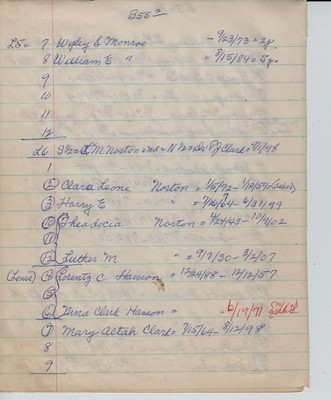 B55 2
L5 = 7 Wyley S Monroe - 9/23/73 = 2y.
8 William E " = 8/15/84 = 5y.
9
10
11
12
L6 S 1/2 = J, M Norton Ind = N 1/2 = Dr P J Clark = 9/1/98
1
2 Clara Leone Norton = 1/15/92 -
3 Harry E " = - 6/31/99
Theadocia Norton = 2/24/43 - 10/9/02
Luther M " = 9/7/30 - 3/2/07
(Louis) 4 Lorentz C Hanson = 12/24/88 - 12/12/57
5
6 Verna Clark Hanson = - 6/19/71
7 Mary Altah Clark = 7/15/64 - 8/12/98
8
9